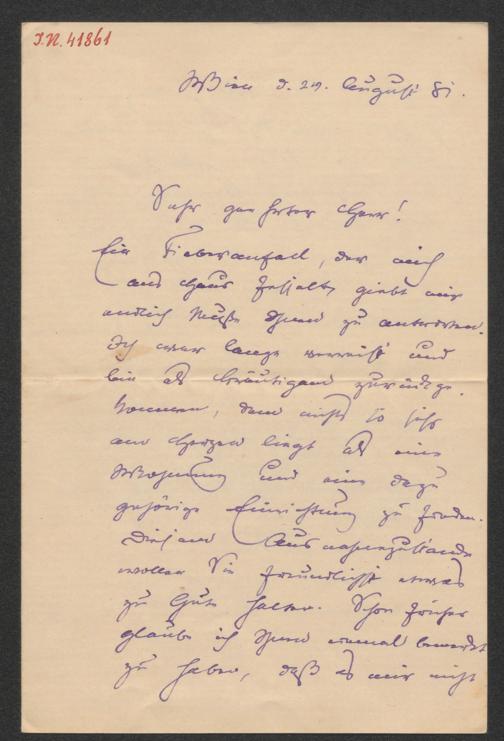 J.N. 41861
Wien d. 29. August 81.
Sehr geehrter Herr!
Ein Fieberanfall, der mich
ans Haus fesselt, giebt mir
endlich Muße Ihnen zu antworten.
Ich war lange verreist und
bin als Bräutigam zurückge-
kommen, dem nichts so sehr
am Herzen liegt als eine
Wohnung und eine dazu
gehörige Einrichtung zu finden.
Diesem Ausnahmszustande
wollen Sie freundlichst etwas
zu Gute halten. Schon früher
glaube ich Ihnen einmal bemerkt
zu haben, daß es mir nicht